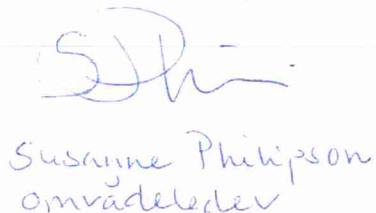 Susanne Philipson
områdeleder